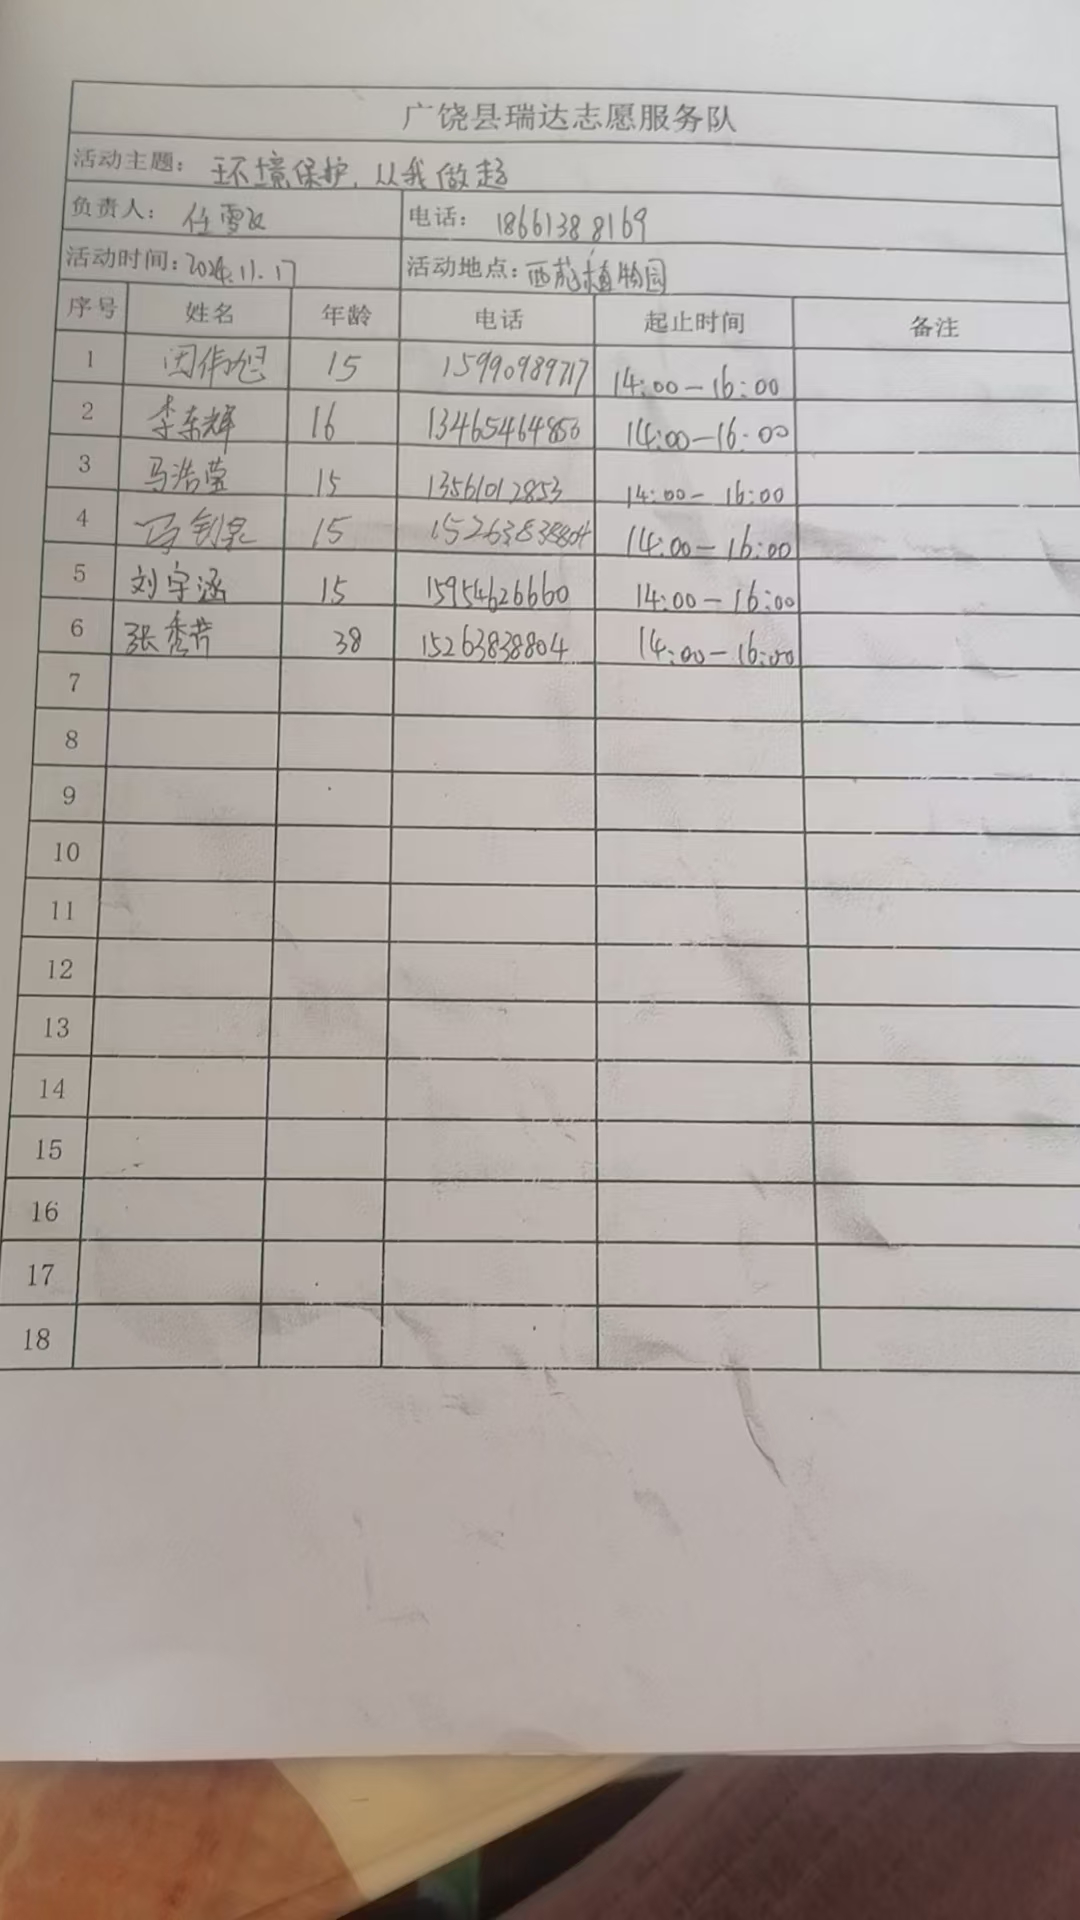 广饶县瑞达志愿服务队
活动主题: 环境保护,从我做起
负责人: 任雪 电话: 18661388169
活动时间: 2024.11.17 活动地点: 西苑植物园
序号 姓名 年龄 电话 起止时间 备注
1 闵伟旭 15 15990989717 14:00-16:00
2 李东辉 16 13465464850 14:00-16:00
3 马浩莹 15 13561012853 14:00-16:00
4 马钊 15 15263838804 14:00-16:00
5 刘宇涵 15 15954626660 14:00-16:00
6 张秀芹 38 15263838804 14:00-16:00
7
8
9
10
11
12
13
14
15
16
17
18